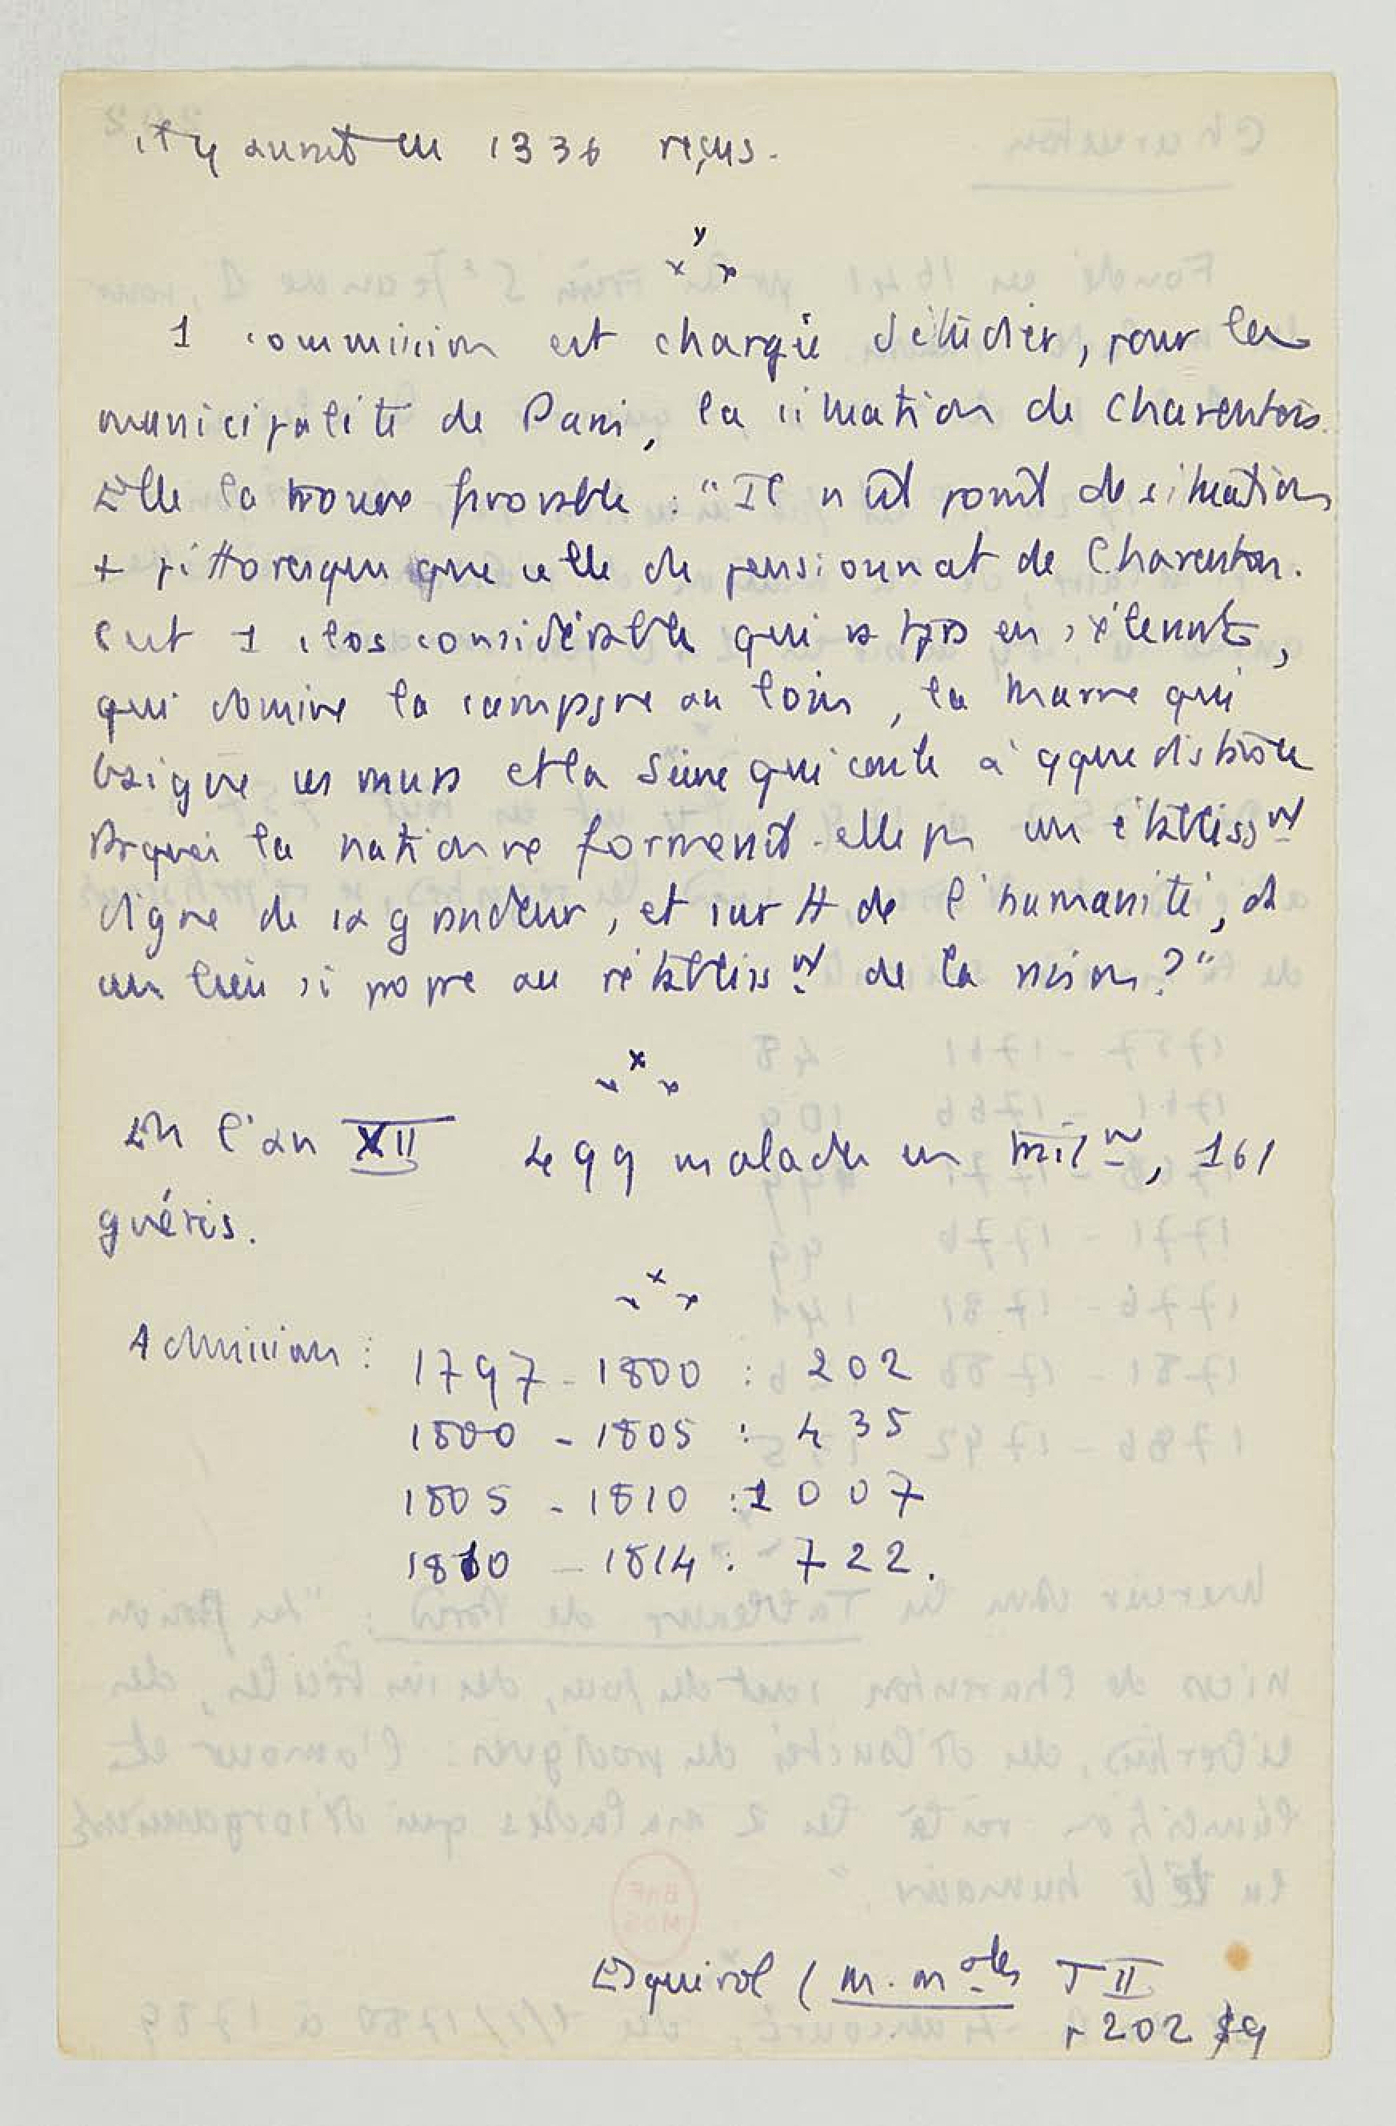 il y aurait eu 1336 reçus.
1 commission est chargée d'étudier, pour la
municipalité de Paris, la situation de Charenton.
Elle la trouve favorable : "Il n'est point de situation
+ pittoresque que celle du pensionnat de Charenton.
C'est 1 clos considérable qui
qui domine la campagne au loin, la Marne qui
baigne ses murs et la Seine qui coule à qque distance
Pquoi la nation ne formerait-elle pas un établisst
digne de sa grandeur, et surtt de l'humanité, ds
un lieu si propre au rétablisst de la raison ?"
En l'an XII 499 malades en trait, 161
guéris.
Admission :
1797 - 1800 : 202
1800 - 1805 : 435
1805 - 1810 : 1007
1810 - 1814 : 722.
Esquirol (M. males T II
p 202 sq